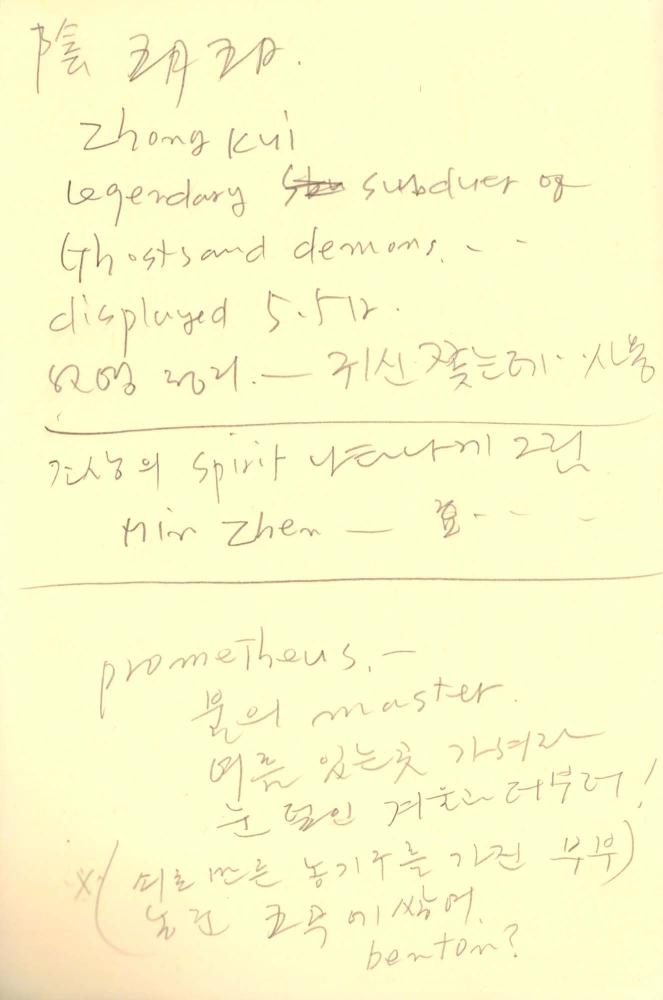 陰
Zhong Kui
Legendary subduer of
Ghosts and demons. - -
displayed 5.5 다.
귀신 쫓는데 사용
조상의 spirit 나타나게 그린
Min Zhen — 효 - - -
prometheus. -
불의 master.
여름 있는곳 가져라
눈 덮인 겨울과 더부러!
x (쇠로 만든 농기구를 가진 부부)
오곡에 쌓여.
benton?